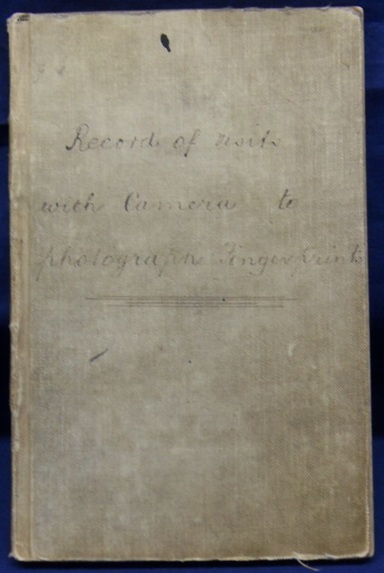 Record of visits
with Camera to
photograph Finger Prints